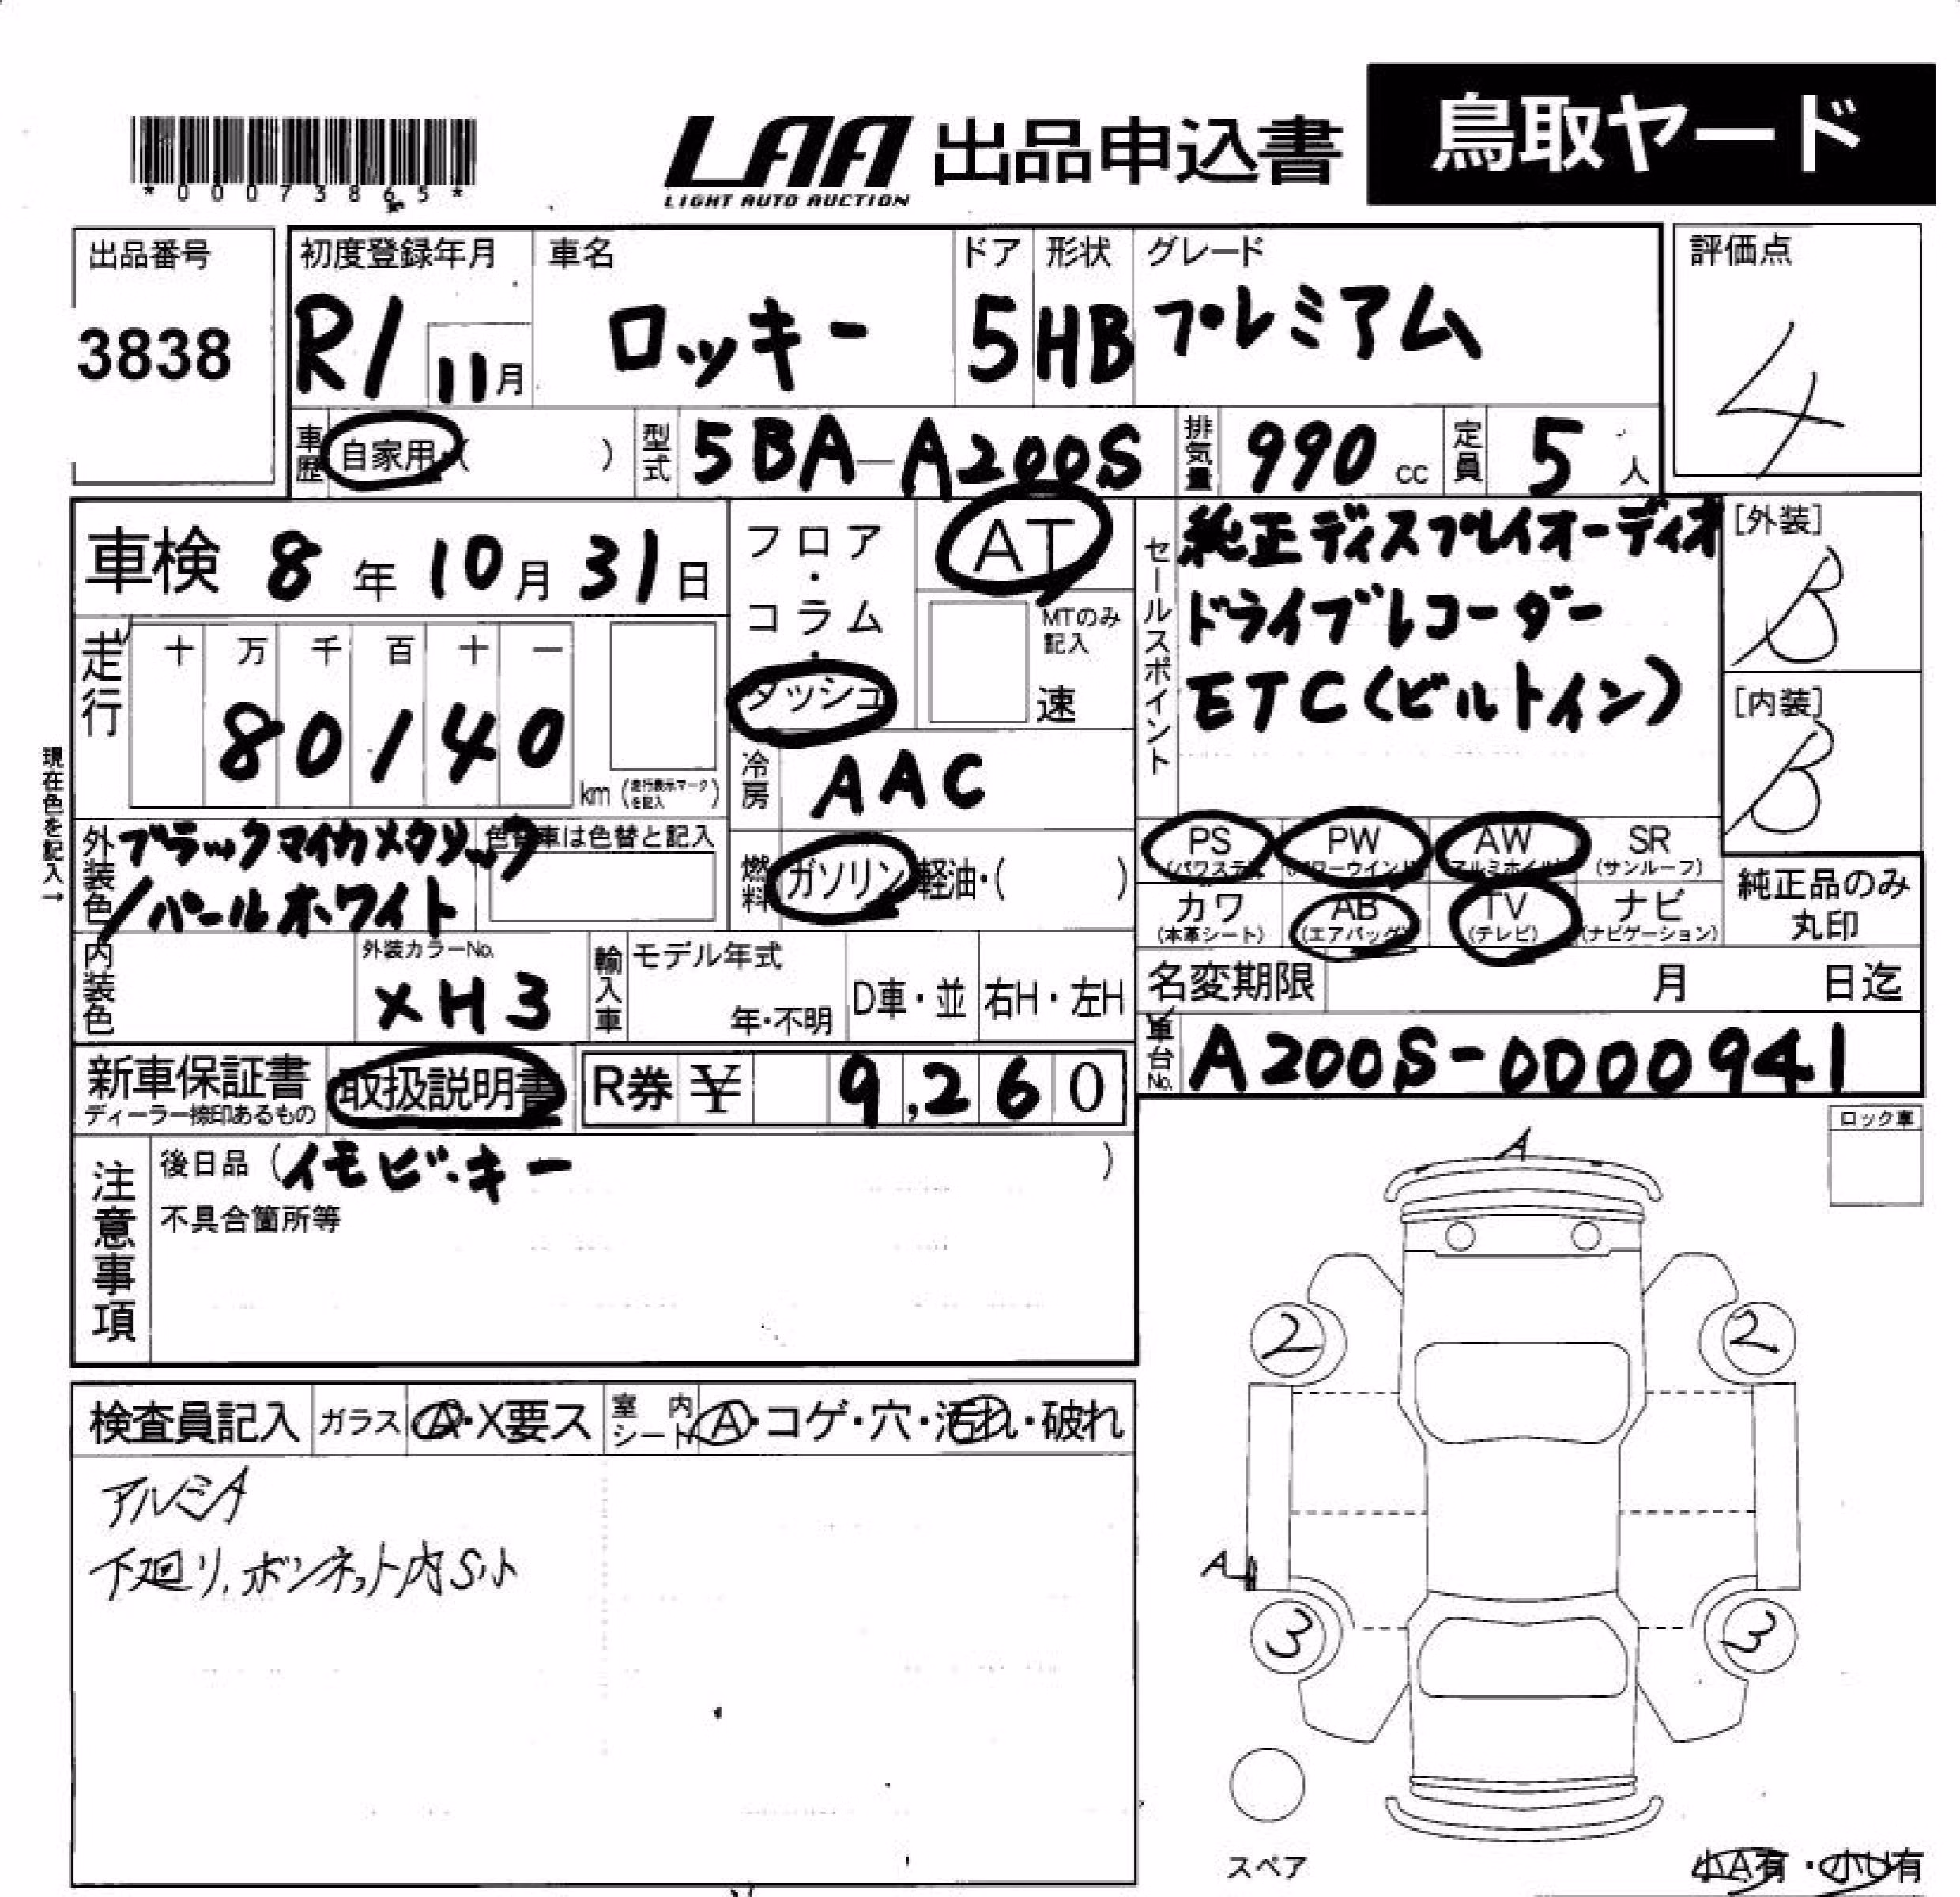 *00073865*
LAA 出品申込書 鳥取ヤード
LIGHT AUTO AUCTION
出品番号 3838
初度登録年月 R1 11月
車名 ロッキー
ドア 5
形状 HB
グレード プレミアム
評価点 4
車歴 自家用・( )
型式 5BA-A200S
排気量 990 cc
定員 5 人
車検 8年10月31日
走行 十 万 千 百 十 一
80140 km (走行表示マークを記入)
フロア・コラム・ダッシュ
AT
MTのみ記入
速
冷房 AAC
燃料 ガソリン・軽油・( )
セールスポイント
純正ディスプレイオーディオ
ドライブレコーダー
ETC(ビルトイン)
[外装] B
[内装] B
現在色を記入→
外装色 ブラックマイカメタリック
/パールホワイト
色替車は色替と記入
PS (パワステ) PW (パワーウインド) AW (アルミホイル) SR (サンルーフ)
カワ (本革シート) AB (エアバッグ) TV (テレビ) ナビ (ナビゲーション)
純正品のみ丸印
内装色
外装カラーNo. XH3
輸入車 モデル年式 年・不明 D車・並 右H・左H
名変期限 月 日迄
車台No. A200S-0000941
新車保証書
ディーラー捺印あるもの
取扱説明書
R券 ¥ 9,260
注意事項
後日品 (イモビ・キー )
不具合箇所等
ロック車
A
2 2
A
3 3
検査員記入 ガラス A・X要ス 室内シート A・コゲ・穴・汚れ・破れ
アルミA
下廻り、ボンネット内S小
スペア
小A有・小U有